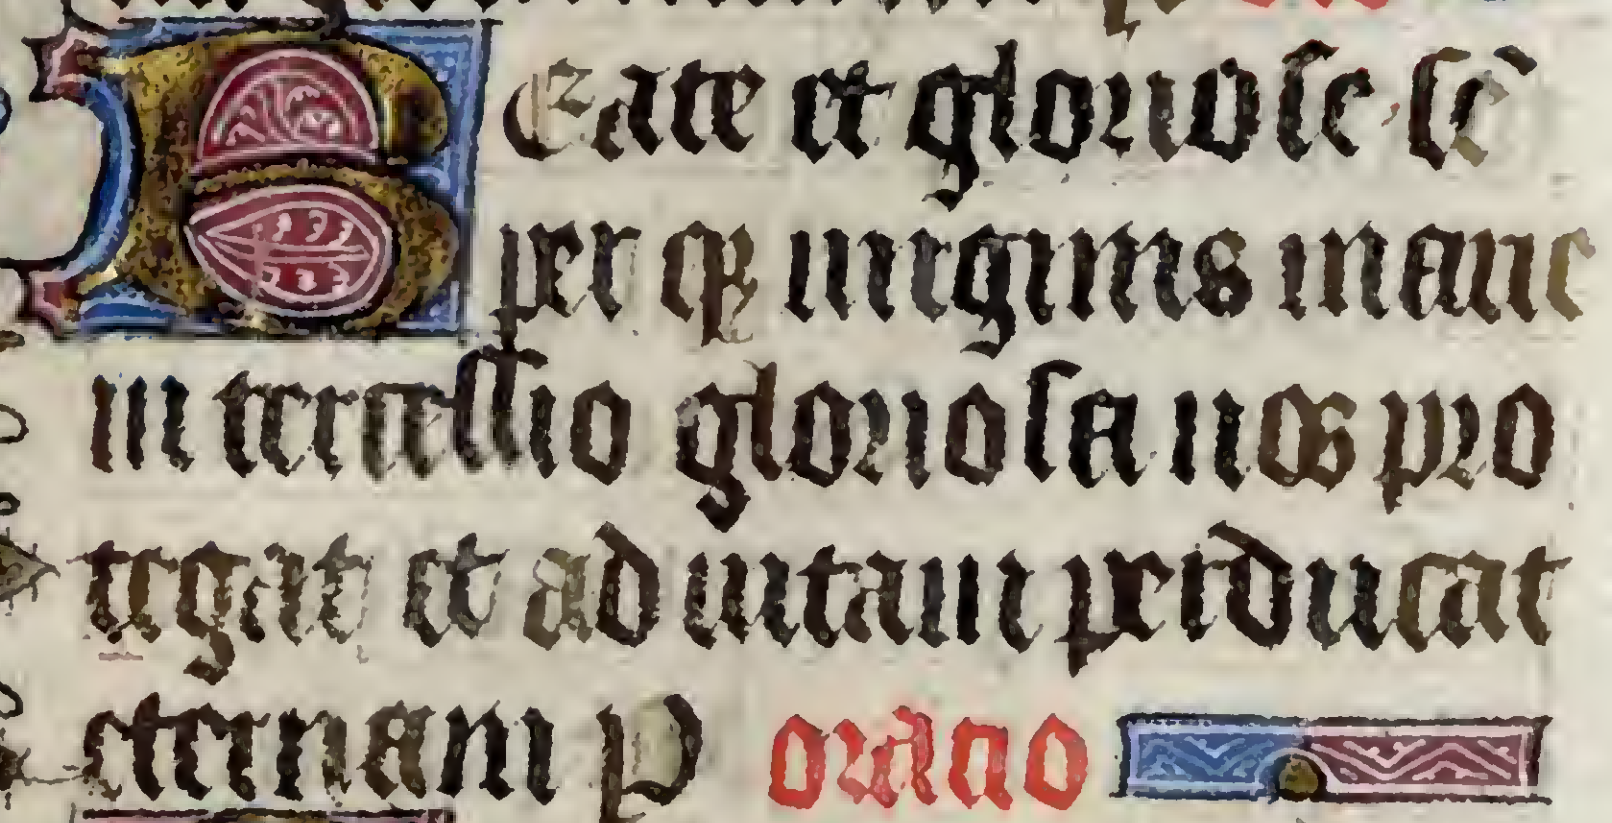 BEate et gloriose sē
per q̃ uirginis marie
intercessio gloriosa nos pro
tegat et ad uitam perducat
eternam p oratio